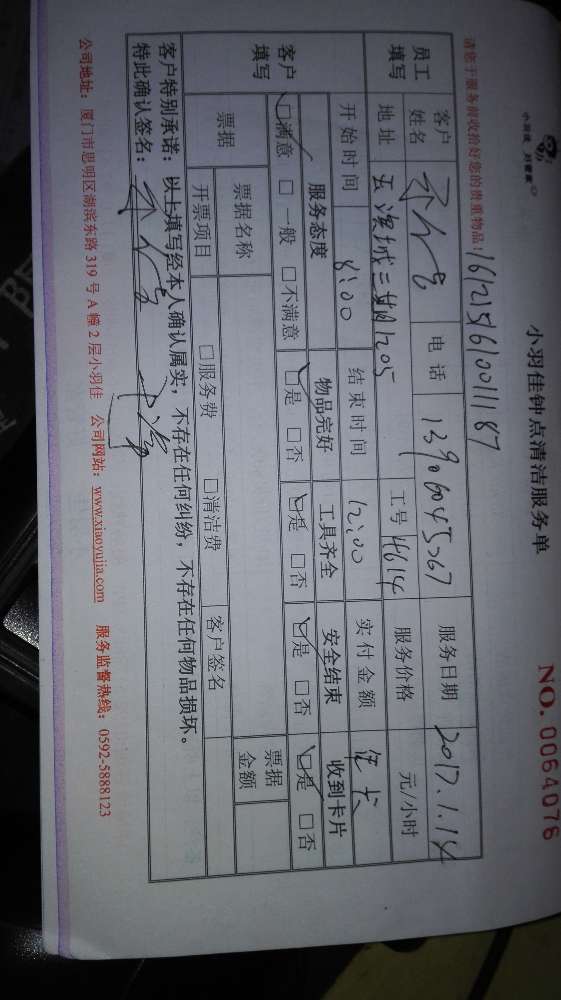 小羽佳钟点清洁服务单
小羽佳 到您家
NO. 0064076
请您于服务前收拾好您的贵重物品: 161215161001187
员工填写 客户姓名 电话 13906045267 服务日期 2017.1.14
地址 三期1205 工号 4614 服务价格 元/小时
开始时间 8:00 结束时间 12:00 实付金额
客户填写 服务态度 物品完好 工具齐全 安全结束 收到卡片
☑满意 □一般 □不满意 ☑是 □否 ☑是 □否 ☑是 □否 ☑是 □否
票据 票据名称 票据金额
开票项目 □服务费 □清洁费 客户签名
客户特别承诺：以上填写经本人确认属实，不存在任何纠纷，不存在任何物品损坏。
特此确认签名：
公司地址：厦门市思明区湖滨东路 319 号 A 幢 2 层小羽佳 公司网站：www.xiaoyujia.com 服务监督热线：0592-5888123